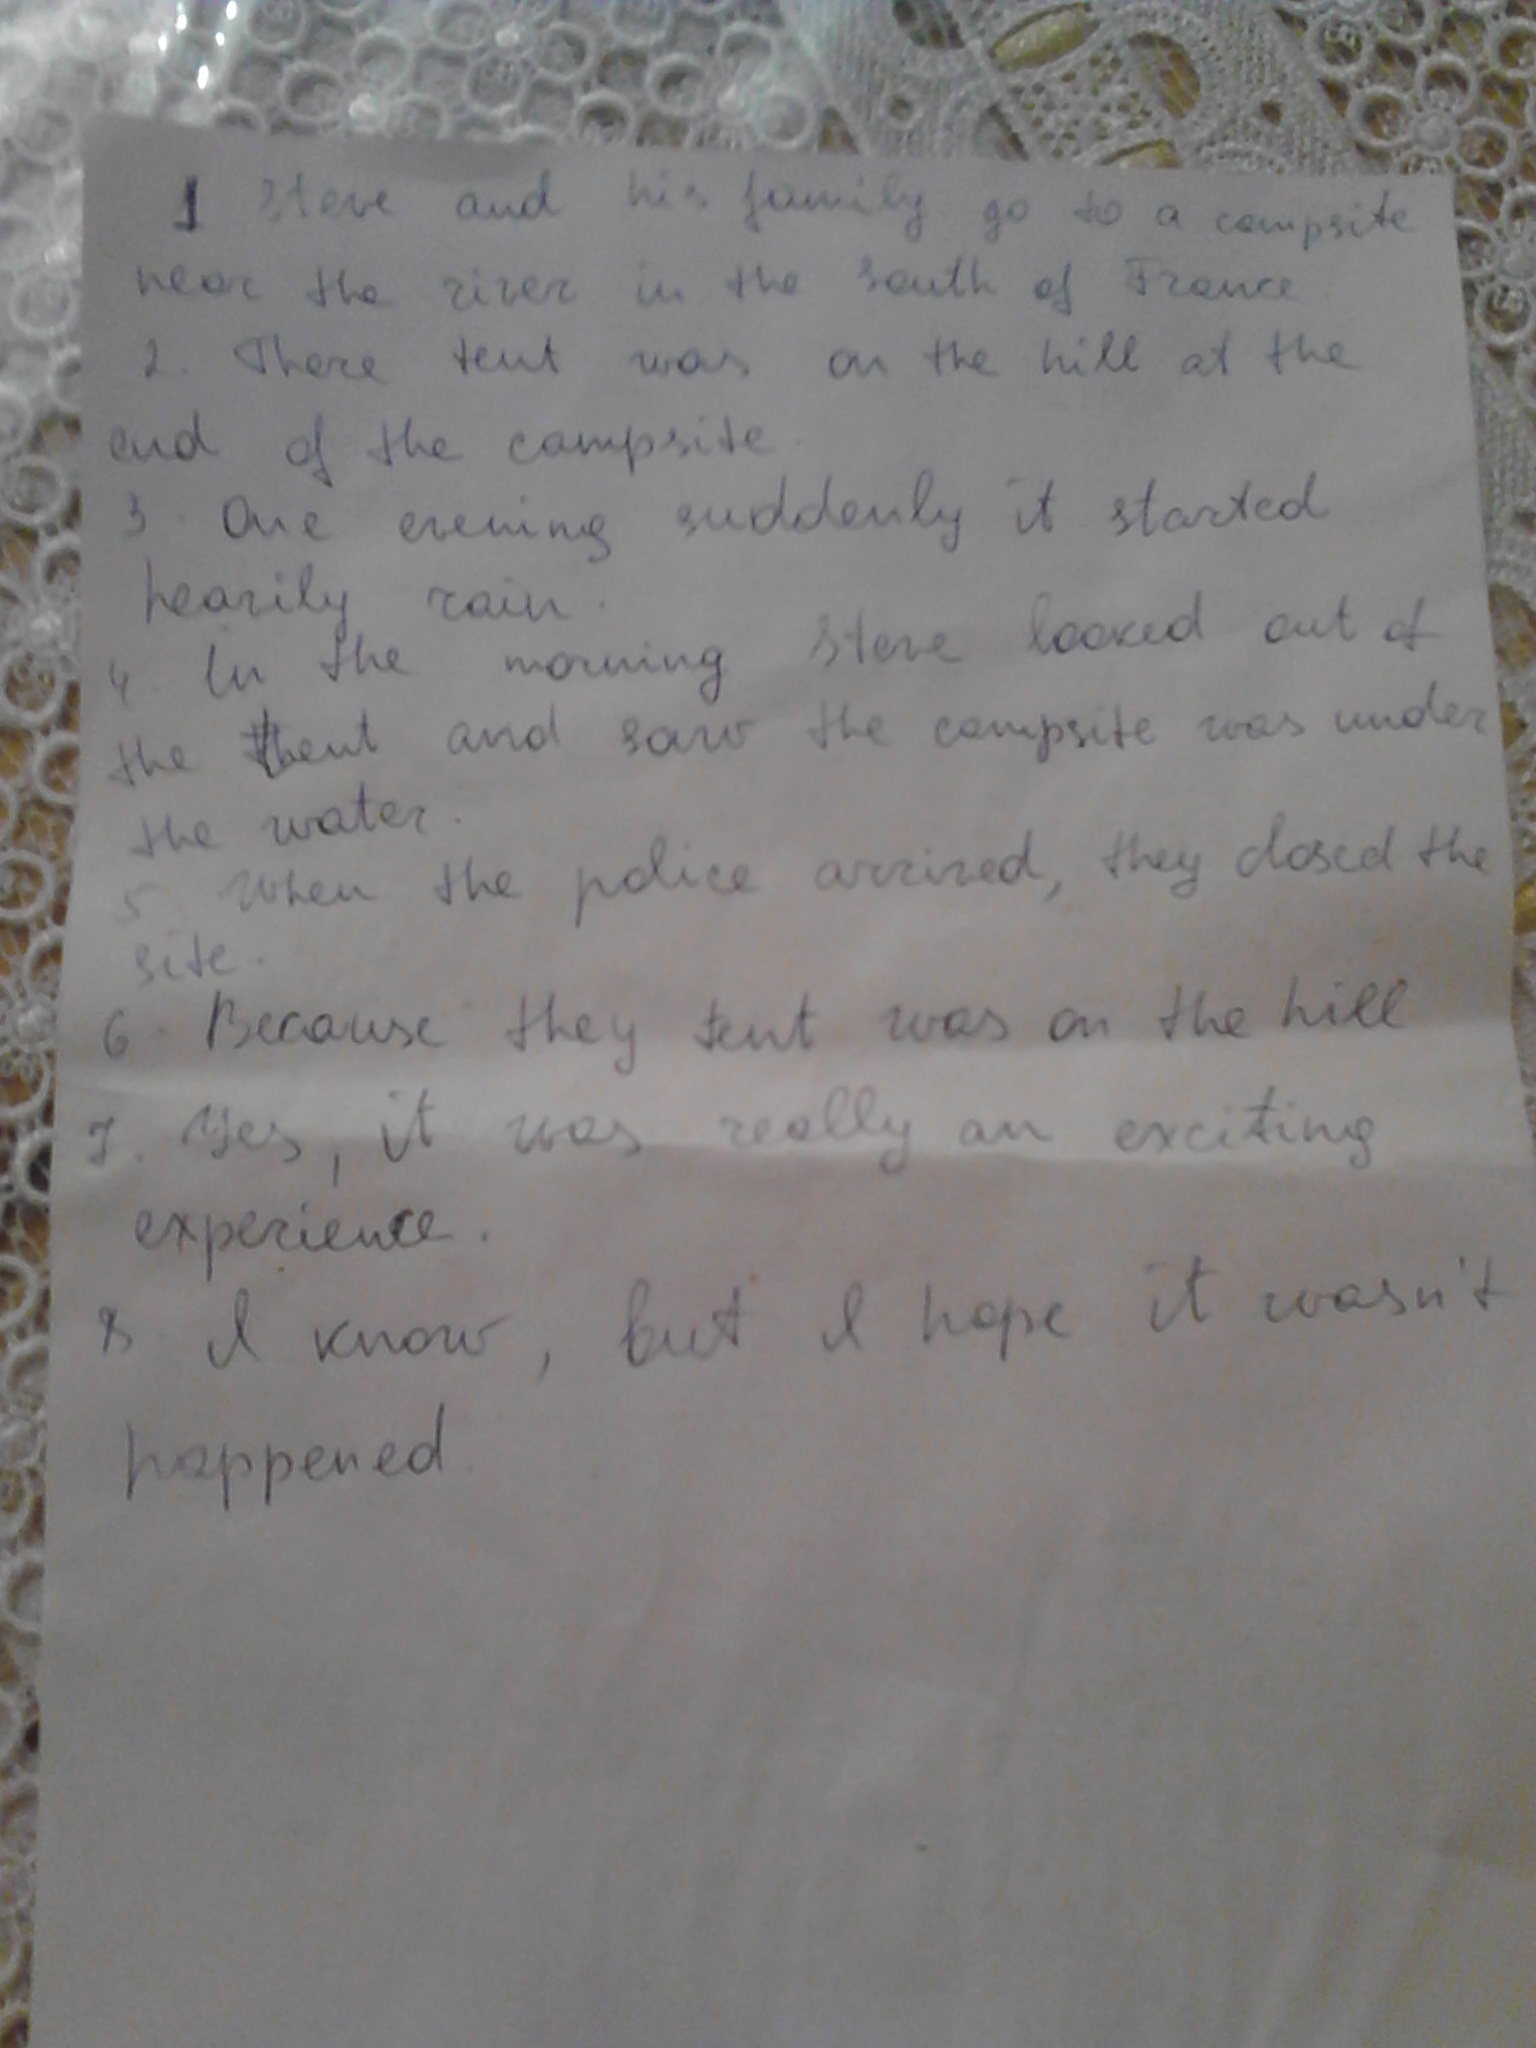 1 Steve and his family go to a campsite
near the river in the south of France
2. There tent was on the hill at the
end of the campsite.
3. One evening suddenly it started
heavily rain.
4. In the morning Steve looked out of
the tent and saw the campsite was under
the water.
5. When the police arrived, they closed the
site.
6. Because they tent was on the hill
7. Yes, it was really an exciting
experience.
8. I know, but I hope it wasn't
happened.